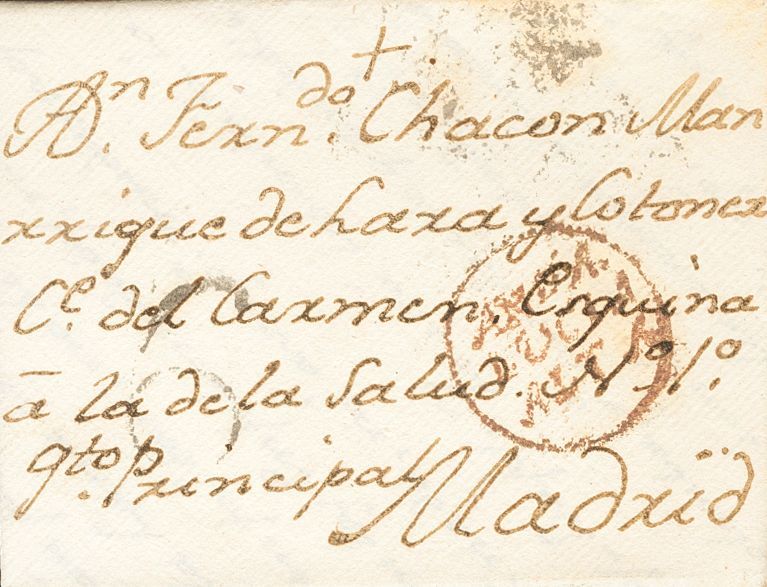 +
A Dn. Ferndo. Chacon Man
rrique de Lara y Cotoner
Ce. del Carmen, Esquina
â la de la Salud. No. 1o.
qto. Principal Madrid